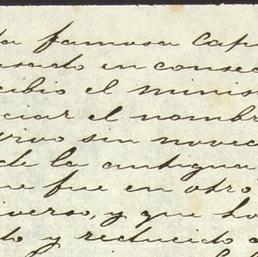 la famosa Cap
usado en consec
cibio el minis
ciar el nombr
vivo sin noved
de la antigua
ue fue en otro
iverso, y que ho
do y reducido a